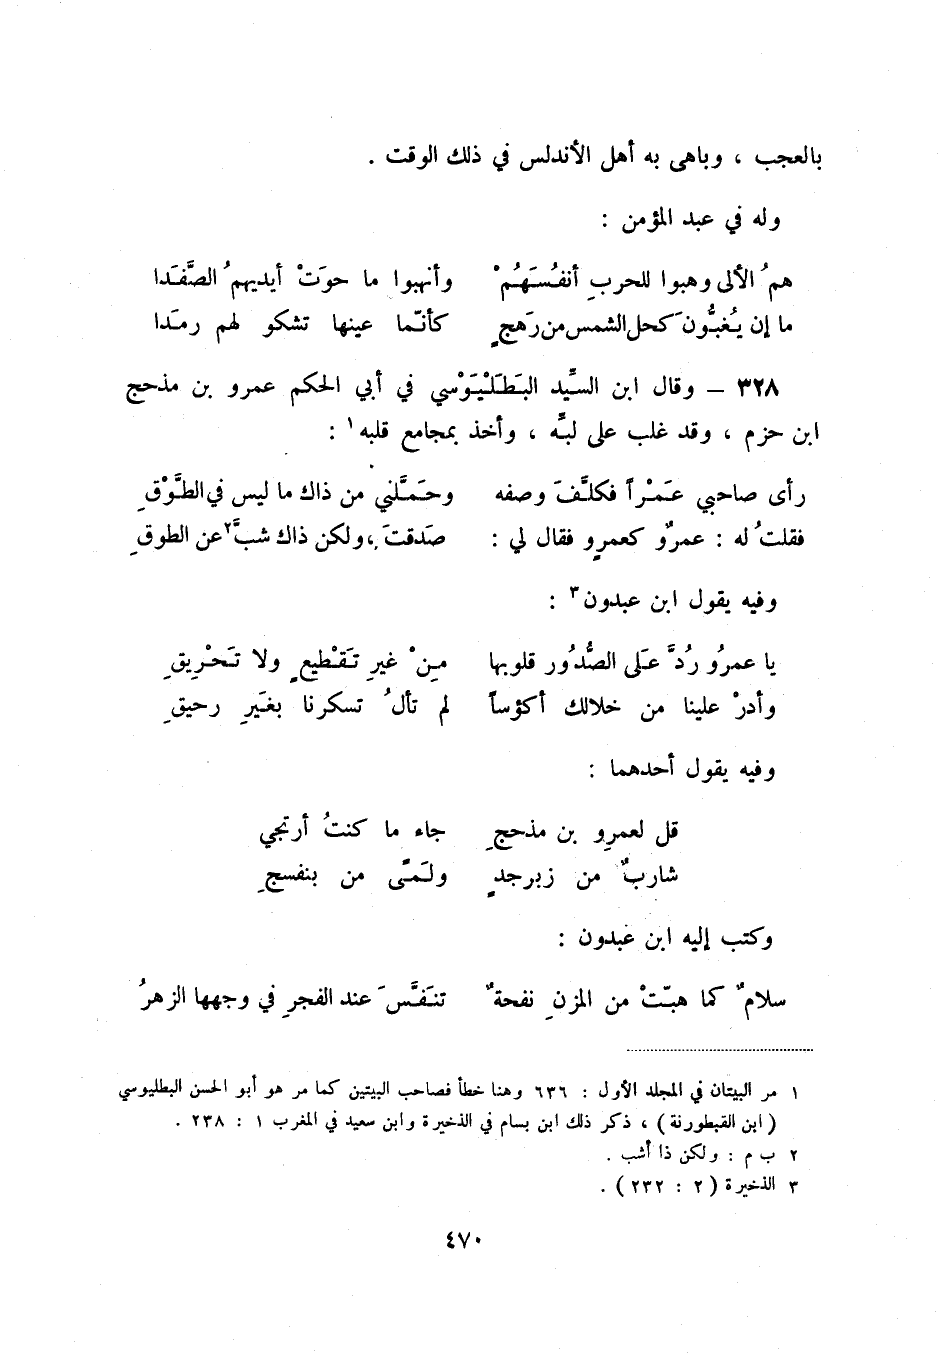 بالعجب ، وباهى به أهل الأندلس في ذلك الوقت .
وله في عبد المؤمن :
همُ الألى وهبوا للحربِ أنفُسَهُمْ وأنهبوا ما حوَتْ أيديهمُ الصَّفَدا
ما إن يُغبُّونَ كحل الشمس من رَهجٍ كأنّما عينها تشكو لهم رمَدا
٣٢٨ – وقال ابن السيِّد البَطَلْيَوْسي في أبي الحكم عمرو بن مذحج
ابن حزم ، وقد غلب على لبِّه ، وأخذ بمجامع قلبه١ :
رأى صاحبي عَمْراً فكلَّفَ وصفه وحَمَّلني من ذاك ما ليس في الطَّوْقِ
فقلتُ له : عمروٌ كعمرٍو فقال لي : صَدقتَ ، ولكن ذاك شبَّ٢ عن الطوقِ
وفيه يقول ابن عبدون٣ :
يا عمرُو رُدَّ عَلى الصُّدُور قلوبها مِنْ غيرِ تَقْطيعٍ ولا تَحْرِيقِ
وأدرْ علينا من خلالك أكؤساً لم تألُ تسكرنا بغَيَرِ رحيقِ
وفيه يقول أحدهما :
قل لعمرِو بن مذحجِ جاء ما كنتُ أرتجي
شاربٌ من زبرجدٍ ولَمىً من بنفسجِ
وكتب إليه ابن عبدون :
سلامٌ كما هبّتْ من المزنِ نفحةٌ تنَفَّسَ عند الفجرِ في وجهها الزهرُ
١ مر البيتان في المجلد الأول : ٦٣٦ وهنا خطأ فصاحب البيتين كما مر هو أبو الحسن البطليوسي
( ابن القبطورنة ) ، ذكر ذلك ابن بسام في الذخيرة وابن سعيد في المغرب ١ : ٢٣٨ .
٢ ب م : ولكن ذا أشب .
٣ الذخيرة ( ٢ : ٢٣٢ ) .
٤٧٠